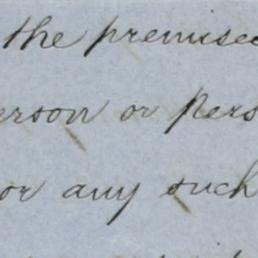 the premised
erson or pers
or any such